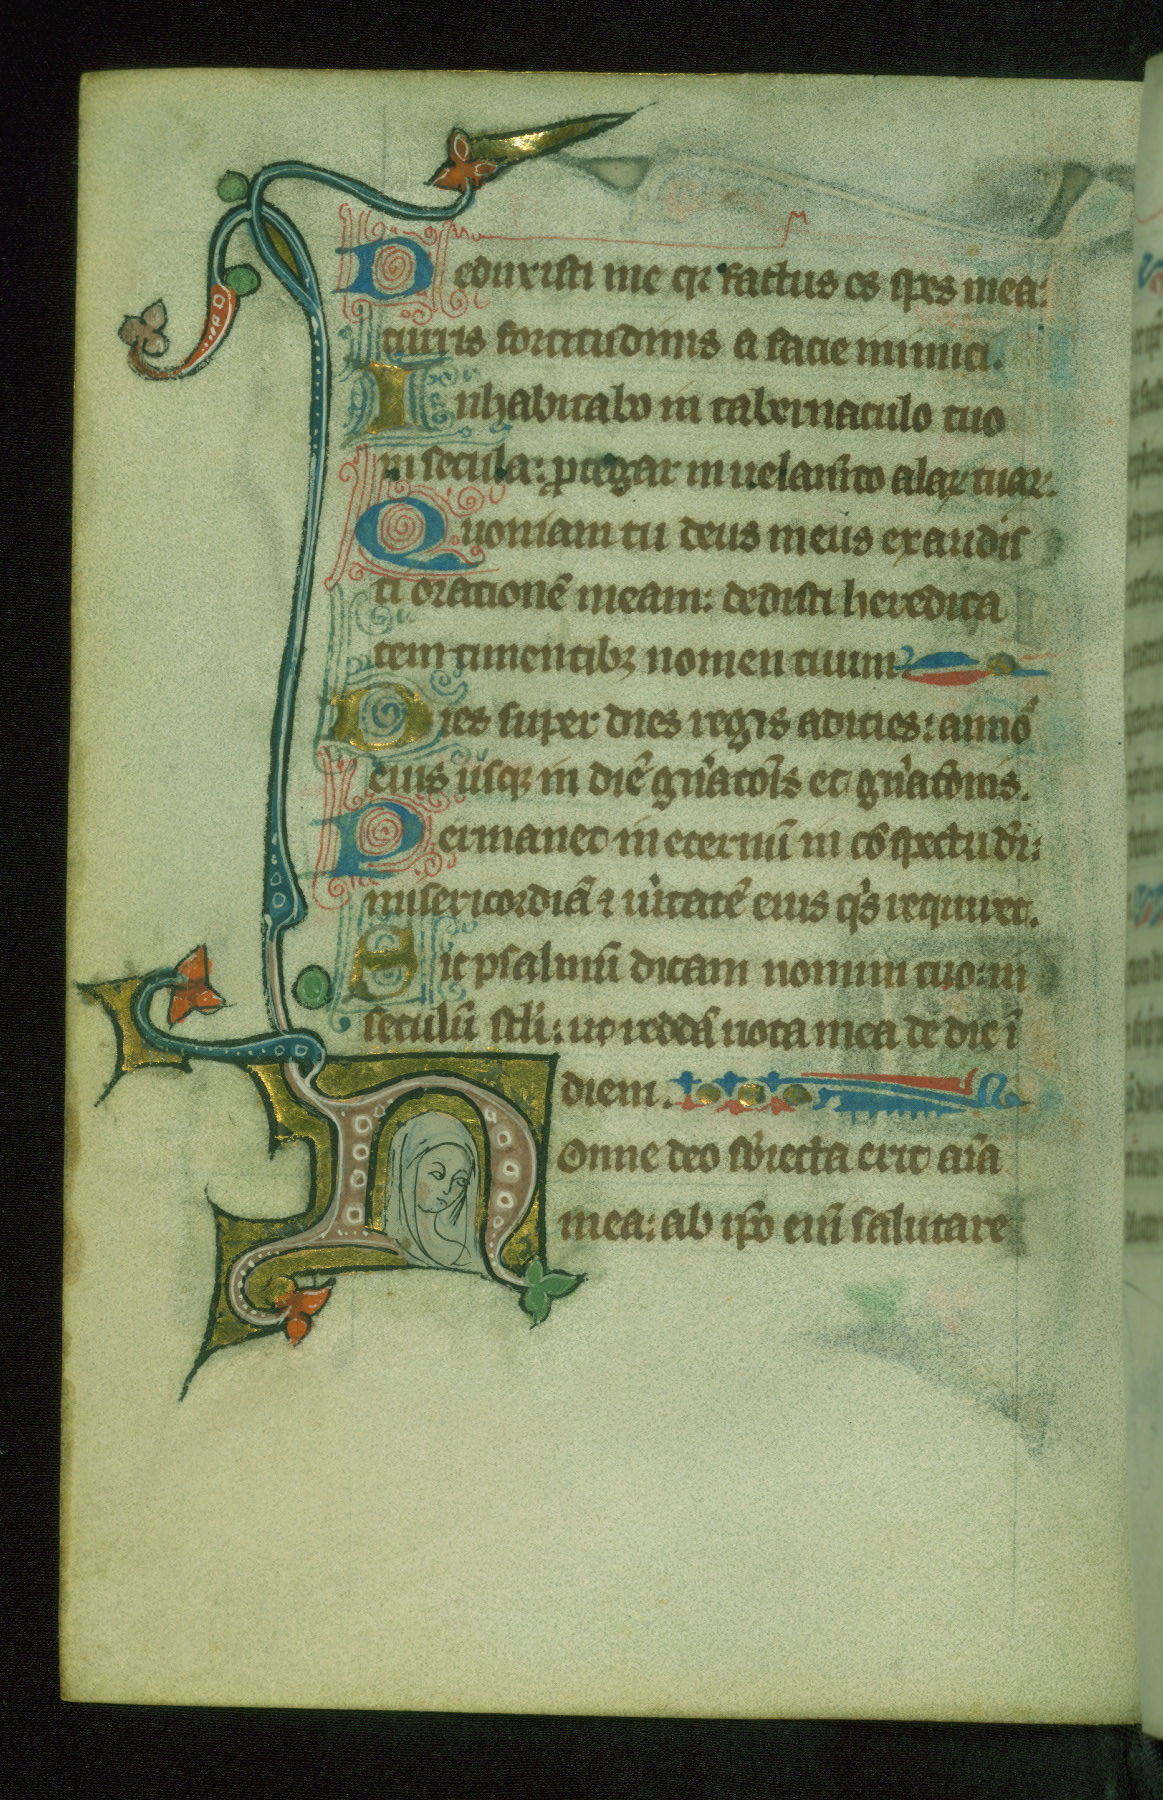 Deduxisti me qr factus es spes mea:
turris fortitudinis a facie inimici.
Inhabitabo in tabernaculo tuo
in secula: ꝓtegar in uelam̄to alaꝝ tuaꝝ.
Quoniam tu deus meus exaudis
ti orationē meam: dedisti heredita
tem timentibꝫ nomen tuum
Dies super dies regis adicies: anno⁹
eius usqꝫ in diē gn̄atōis et gn̄atōnis.
Permanet in eternū in cōspectu dī:
misericordiā ⁊ ueritatē eius q̄s requiret.
Sic psalmū dicam nomini tuo: in
seculū scl̄i: ut reddā uota mea de die ī
diem.
Nonne deo sb̄iecta erit aīa
mea: ab ip̄o enī salutare